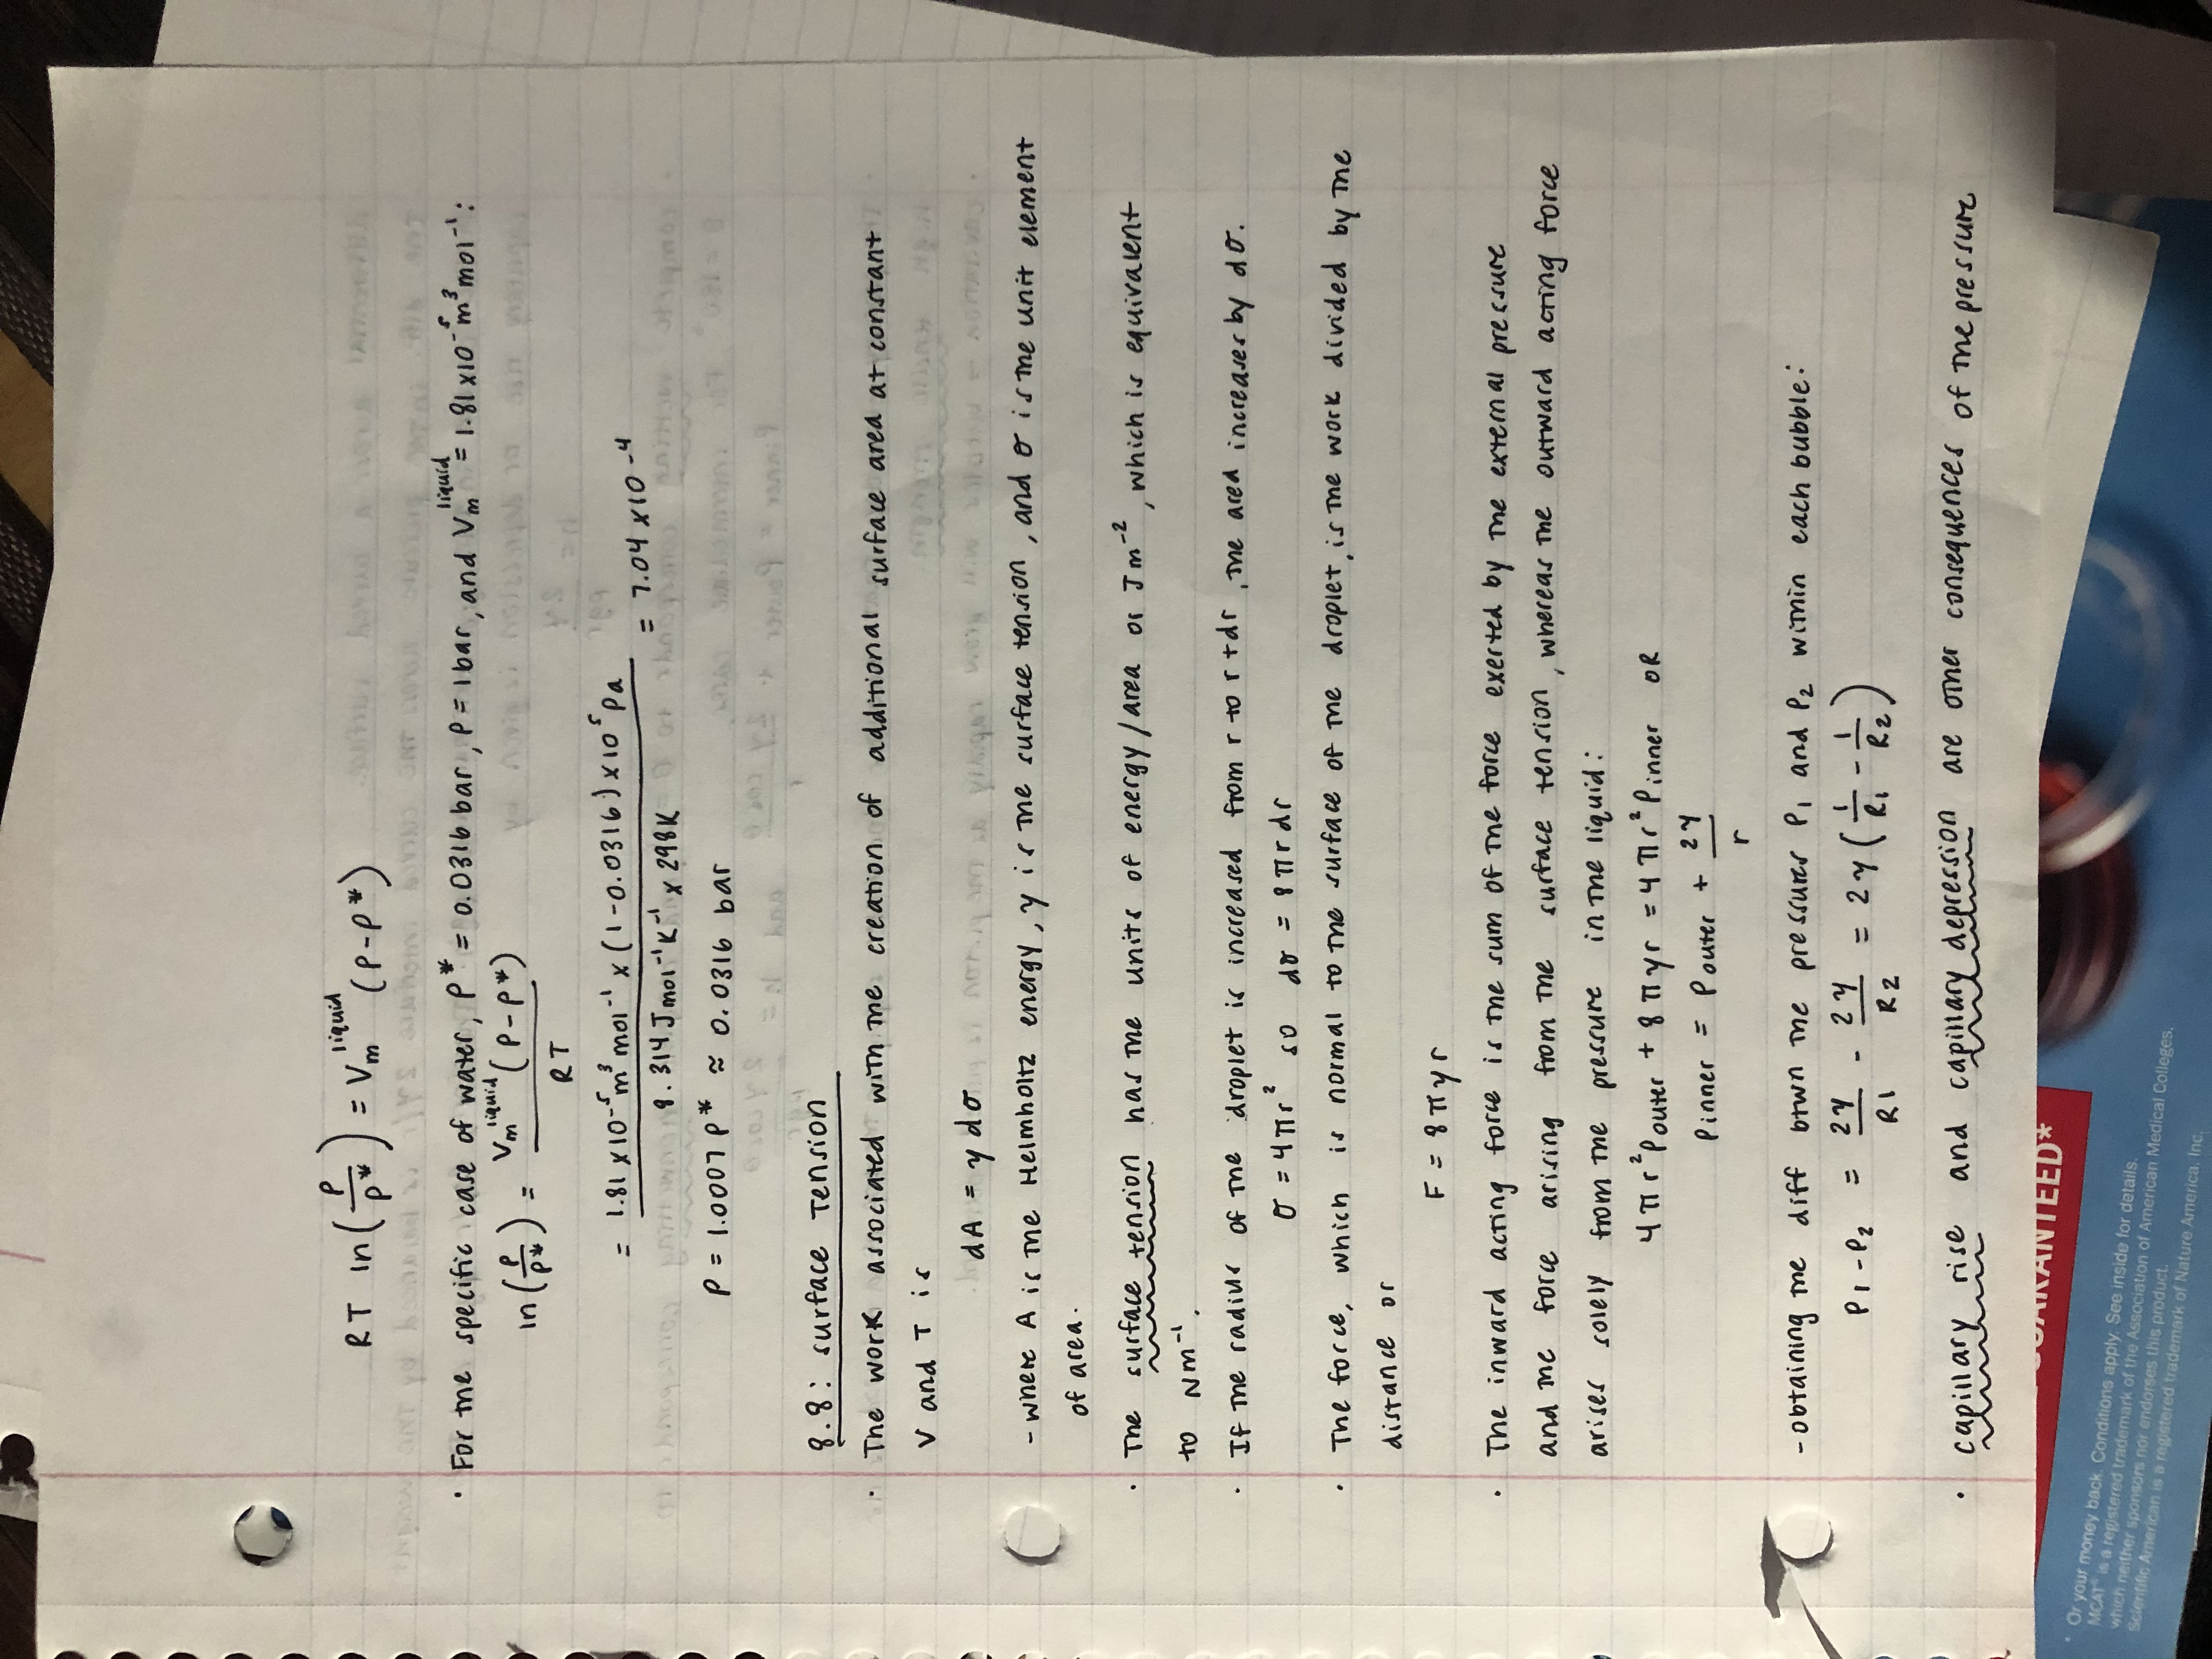 RT ln(P/P*) = Vm^liquid (P-P*)
· For the specific case of water, P* = 0.0316 bar, P = 1 bar, and Vm^liquid = 1.81 x10^-5 m^3 mol^-1:
ln(P/P*) = Vm^liquid (P-P*) / RT
= 1.81 x10^-5 m^3 mol^-1 x (1-0.0316) x10^5 Pa / 8.314 J mol^-1 K^-1 x 298K = 7.04 x10^-4
P = 1.0007 P* ≈ 0.0316 bar
8.8: Surface Tension
· The work associated with the creation of additional surface area at constant
V and T is
dA = γ dσ
- where A is the Helmholtz energy, γ is the surface tension, and σ is the unit element
of area.
· The surface tension has the units of energy/area or Jm^-2, which is equivalent
to Nm^-1.
· If the radius of the droplet is increased from r to r+dr, the area increases by dσ.
σ = 4πr^2 so dσ = 8πr dr
· The force, which is normal to the surface of the droplet, is the work divided by the
distance or
F = 8πγr
· The inward acting force is the sum of the force exerted by the external pressure
and the force arising from the surface tension, whereas the outward acting force
arises solely from the pressure in the liquid:
4πr^2 Pouter + 8πγr = 4πr^2 Pinner OR
Pinner = Pouter + 2γ/r
- obtaining the diff btwn the pressures P1 and P2 within each bubble:
P1 - P2 = 2γ/R1 - 2γ/R2 = 2γ(1/R1 - 1/R2)
· capillary rise and capillary depression are other consequences of the pressure
GUARANTEED*
* Or your money back. Conditions apply. See inside for details.
MCAT® is a registered trademark of the Association of American Medical Colleges,
which neither sponsors nor endorses this product.
Scientific American is a registered trademark of Nature America, Inc.